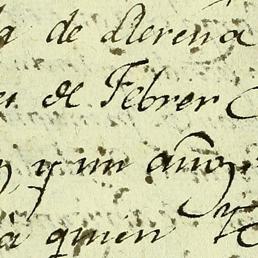 a de Llerena
de Febrer
y un año
a quien